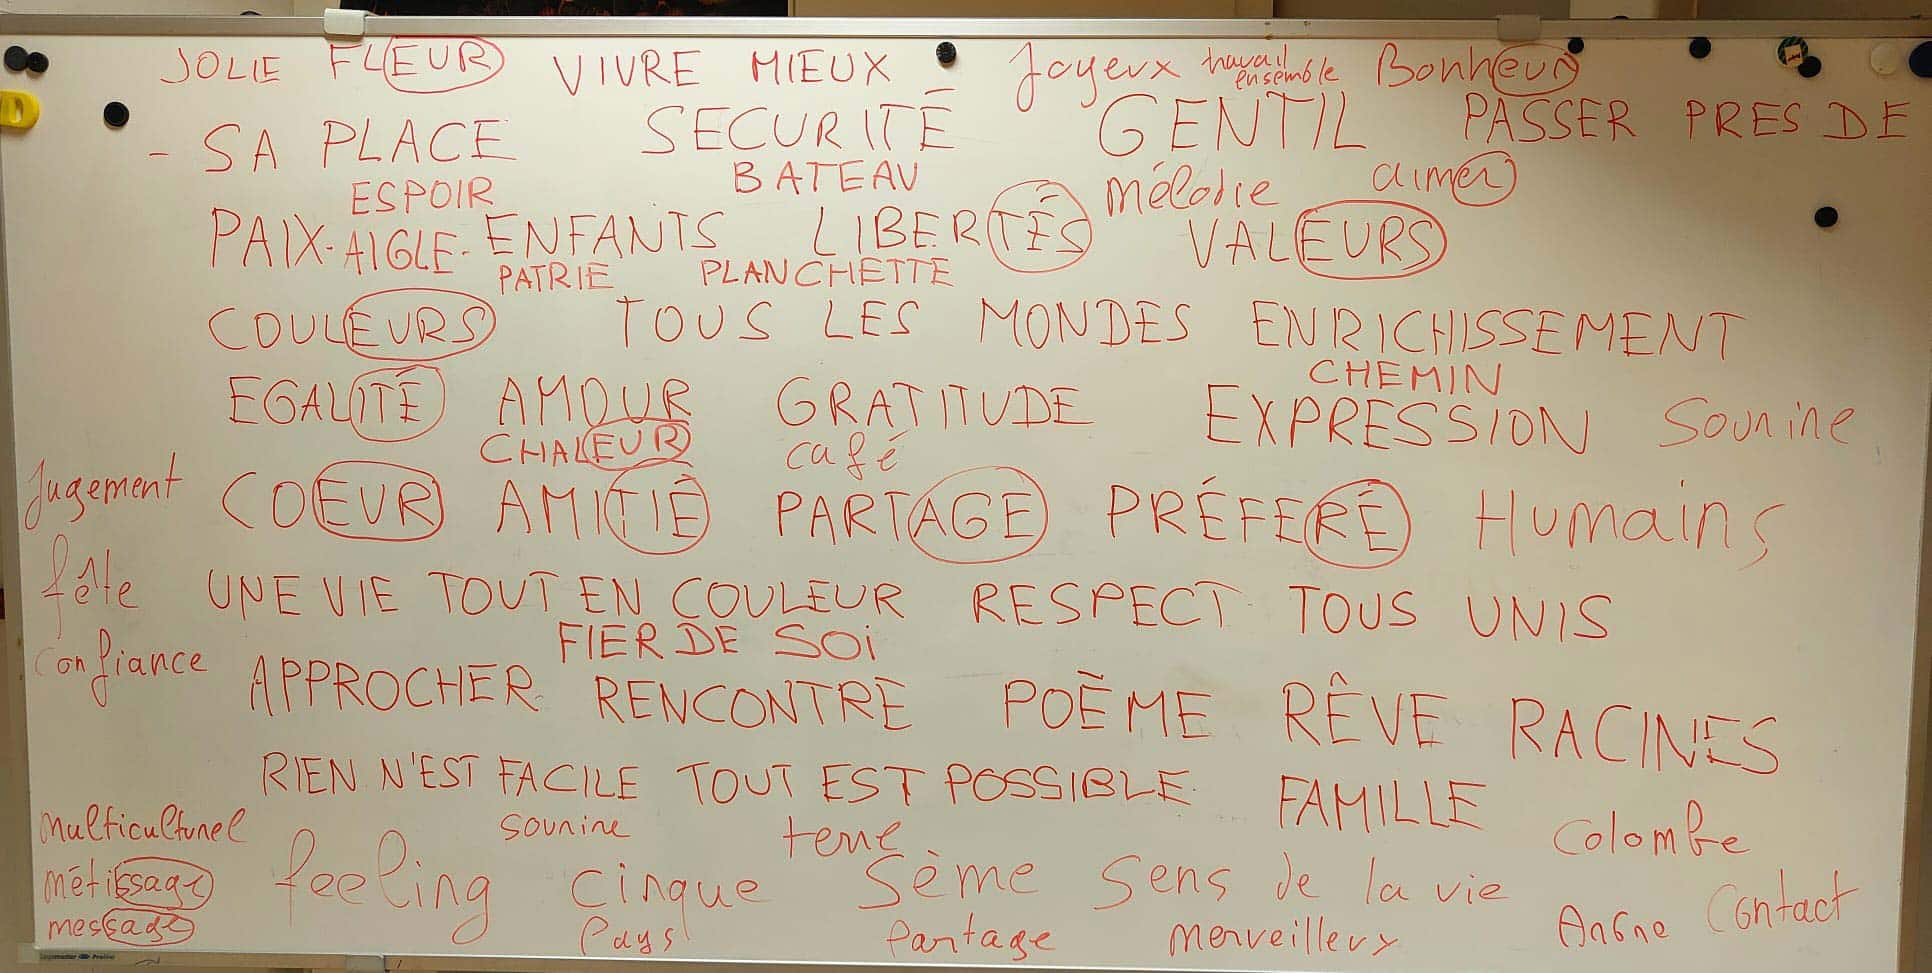 JOLIE FLEUR VIVRE MIEUX Joyeux travail ensemble Bonheur
- SA PLACE SECURITÉ GENTIL PASSER PRES DE
ESPOIR BATEAU mélodie aimer
PAIX. AIGLE. ENFANTS LIBERTÉS VALEURS
PATRIE PLANCHETTE
COULEURS TOUS LES MONDES ENRICHISSEMENT
CHEMIN
EGALITÉ AMOUR GRATITUDE EXPRESSION Sourire
CHALEUR café
Jugement COEUR AMITIÉ PARTAGE PRÉFERÉ Humains
fête UNE VIE TOUT EN COULEUR RESPECT TOUS UNIS
FIER DE SOi
confiance APPROCHER RENCONTRE POÈME RÊVE RACINES
RIEN N'EST FACILE TOUT EST POSSIBLE FAMILLE
multiculturel sourire terre Colombe
métissage feeling cinque Sème Sens de la vie Contact
message Pays Partage merveilleux Arbre